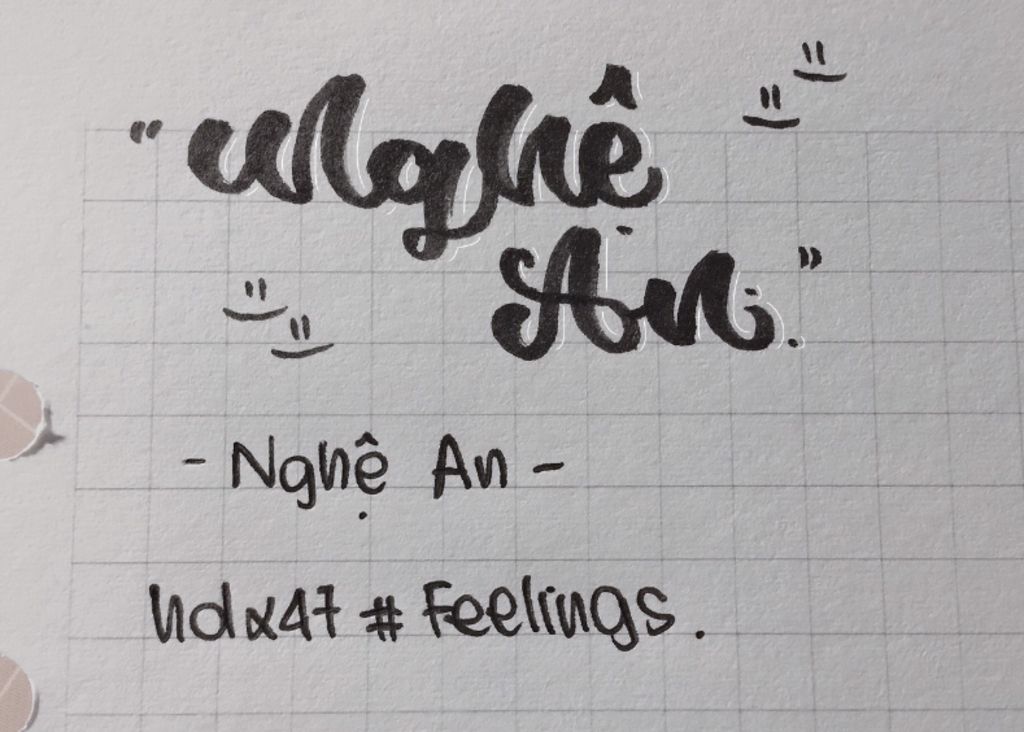 "Nghệ
An."
- Nghệ An -
hdx47 # Feelings.